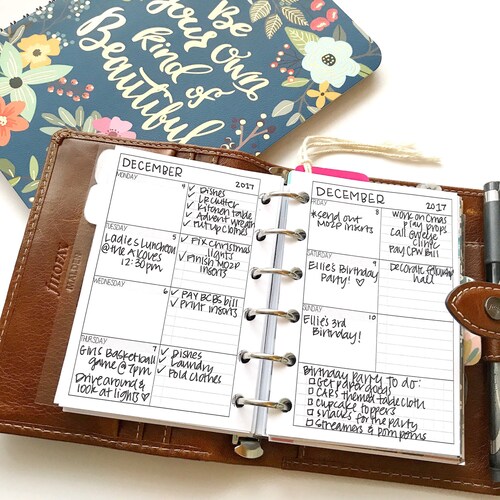 Be
your own
kind of
Beautiful
FILOFAX
MALDEN
DECEMBER 2017
MONDAY
4
✓ Dishes
✓ LR clutter
✓ Kitchen table
✓ Advent wreath
✓ Put up clothes
TUESDAY
5
Ladies Luncheon
@ the Akoves
12:30pm
✓ Fix Christmas
lights
✓ Finish MO2P
inserts
WEDNESDAY
6
✓ PAY BCBS bill
✓ Print inserts
THURSDAY
7
Girls Basketball
game @ 7pm
Drive around &
look at lights ♡
✓ Dishes
✓ Laundry
✓ Fold clothes
DECEMBER 2017
FRIDAY
8
*send out
MO2P inserts
work on Cmas
play props
call
clinic
Pay CPW bill
SATURDAY
9
Ellie's Birthday
Party! ♡
Decorate fellowship
hall
SUNDAY
10
Ellie's 3rd
Birthday!
Birthday Party to do:
□ Get paper goods
□ CARS themed tablecloth
□ Cupcake toppers
□ Snacks for the party
□ Streamers & pom poms